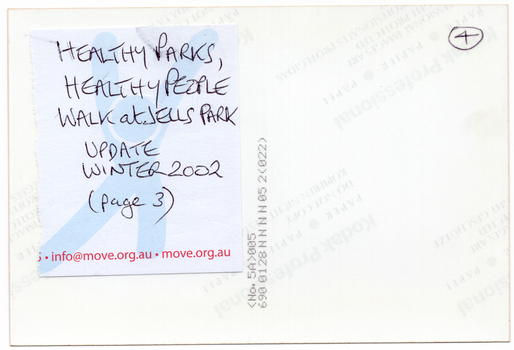 HEALTHY PARKS,
HEALTHY PEOPLE
WALK at JELLS PARK
UPDATE
WINTER 2002
(page 3)
• info@move.org.au • move.org.au
4
<No. 5A>005
690 0128 N N N N 05 2(022)
Kodak Professional
PAPER
Kodak Professional